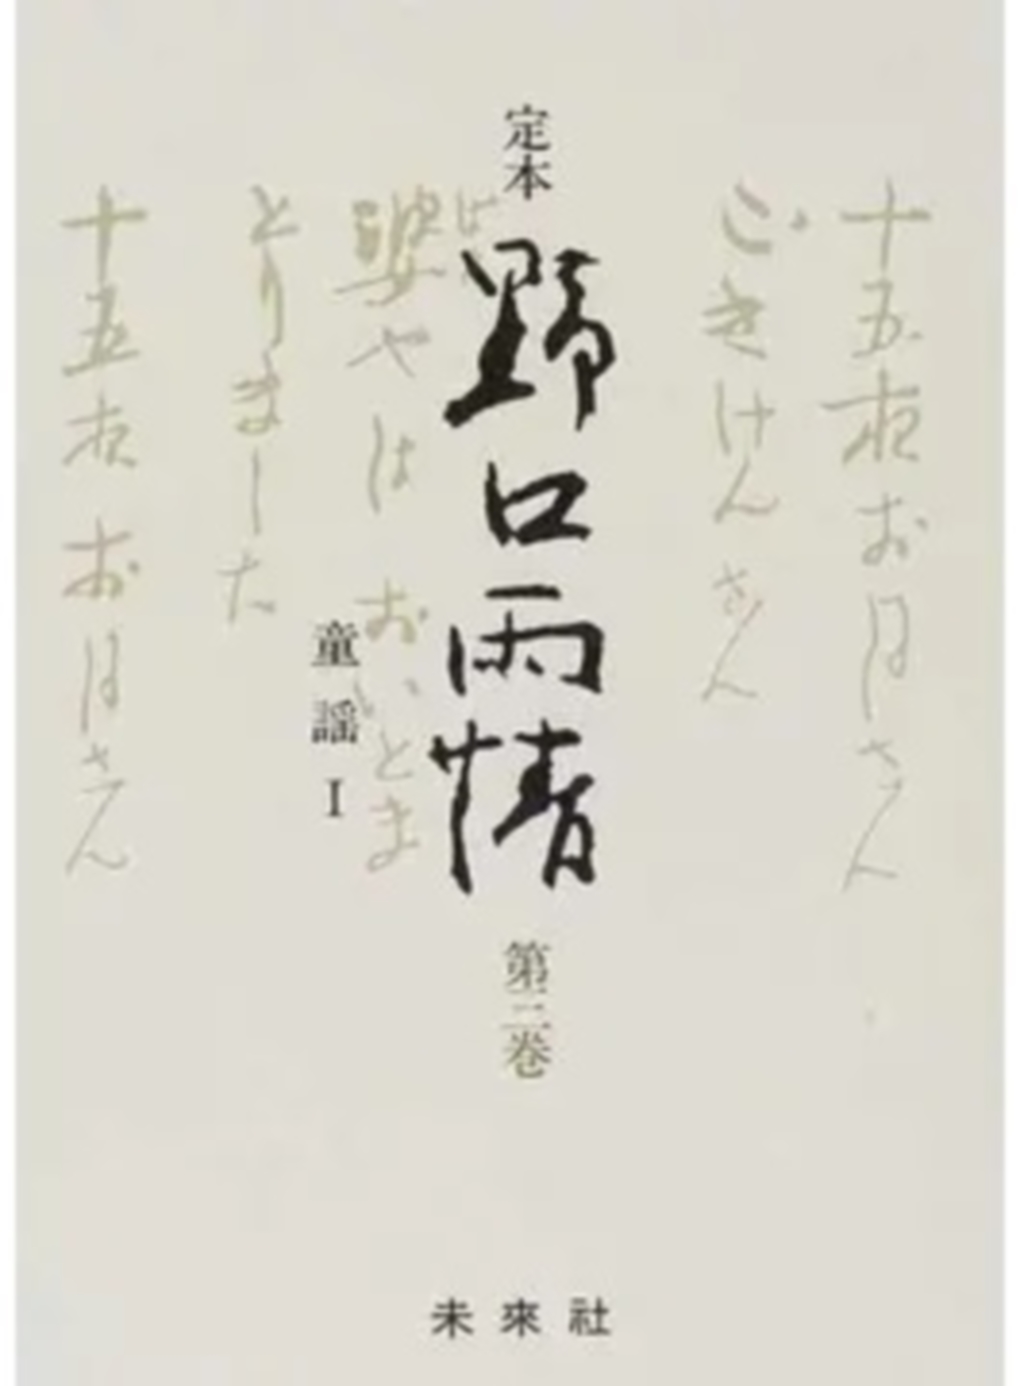 定本
野口雨情
第三巻
童謡 I
十五夜お月さん
ごきけんさん
婆やは おいとま
とりました
十五夜お月さん
未來社